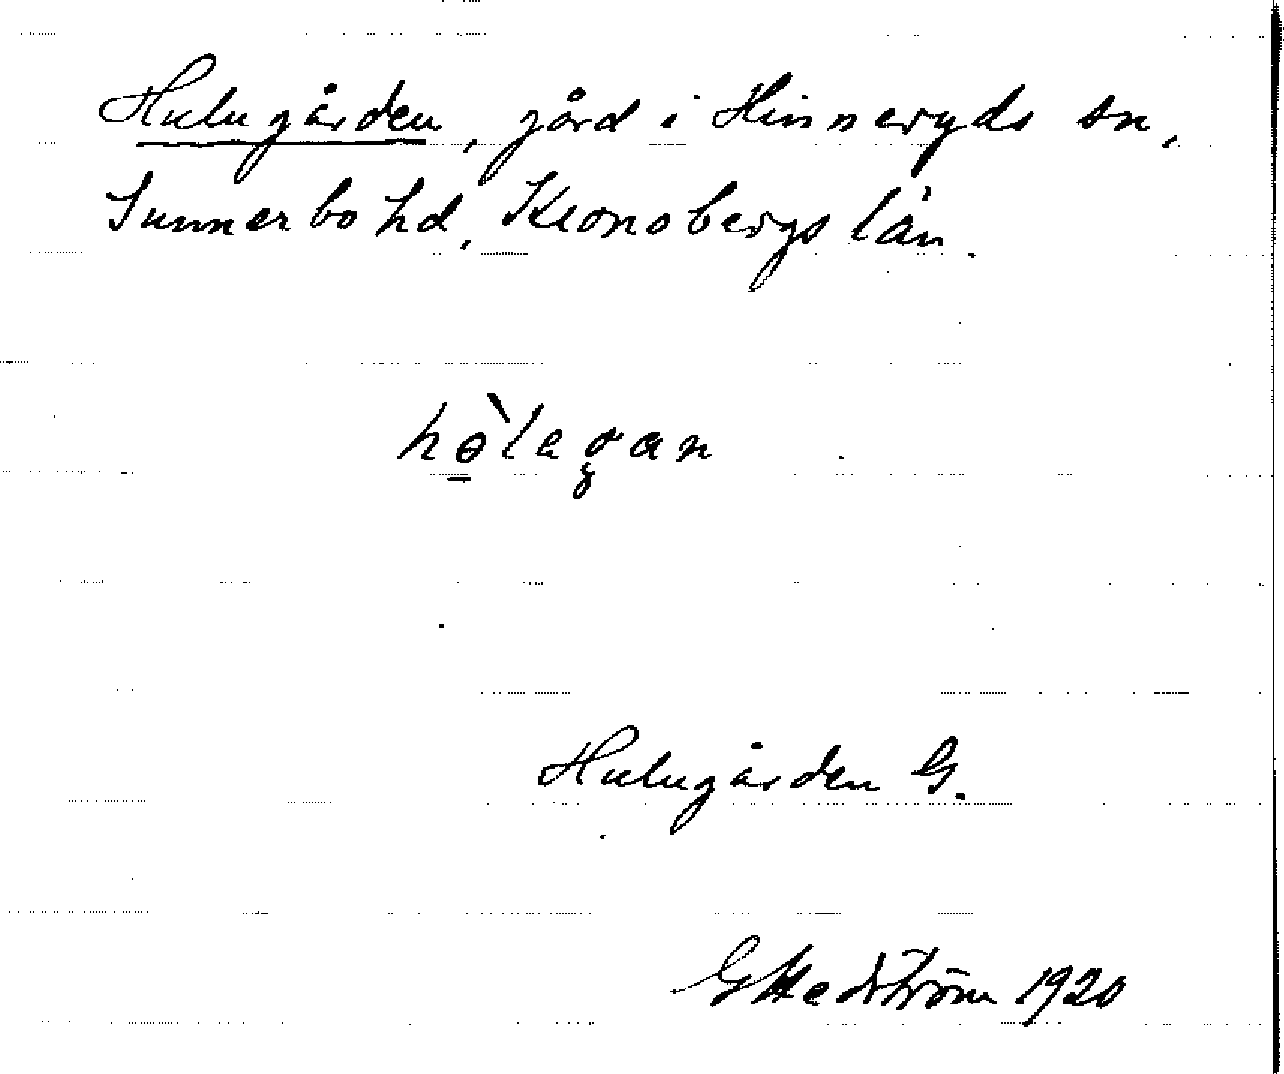 Hulugården, gård i Hinneryds sn,
Sunnerbo hd, Kronobergs län.
hө̠̀legan
Hulugården G.
G Hedström 1920